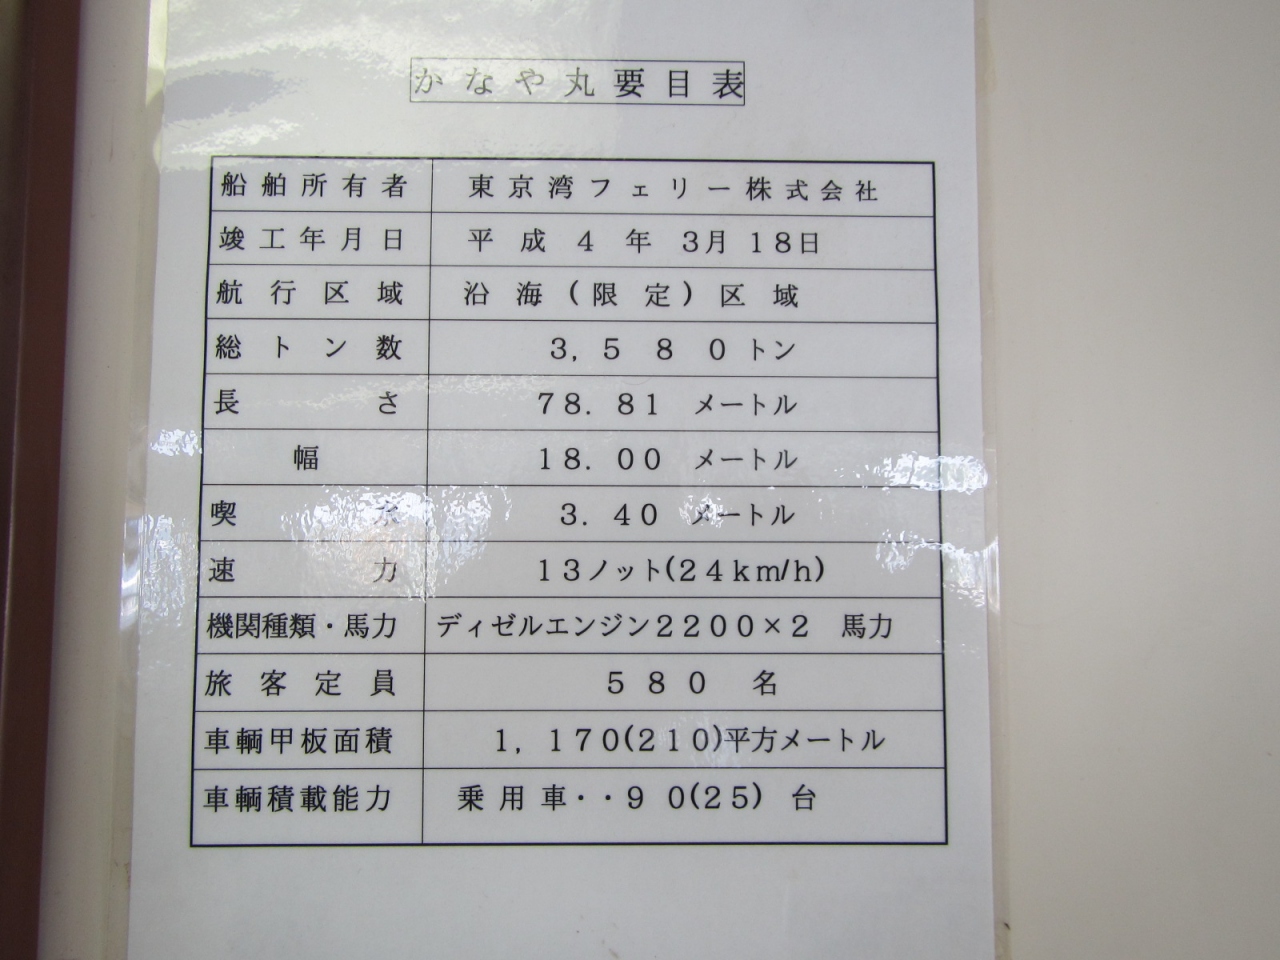 かなや丸要目表
船舶所有者 東京湾フェリー株式会社
竣工年月日 平成4年3月18日
航行区域 沿海(限定)区域
総トン数 3,580トン
長さ 78.81 メートル
幅 18.00 メートル
喫水 3.40 メートル
速力 13ノット(24km/h)
機関種類・馬力 ディゼルエンジン2200×2 馬力
旅客定員 580 名
車輌甲板面積 1,170(210)平方メートル
車輌積載能力 乗用車・・90(25) 台